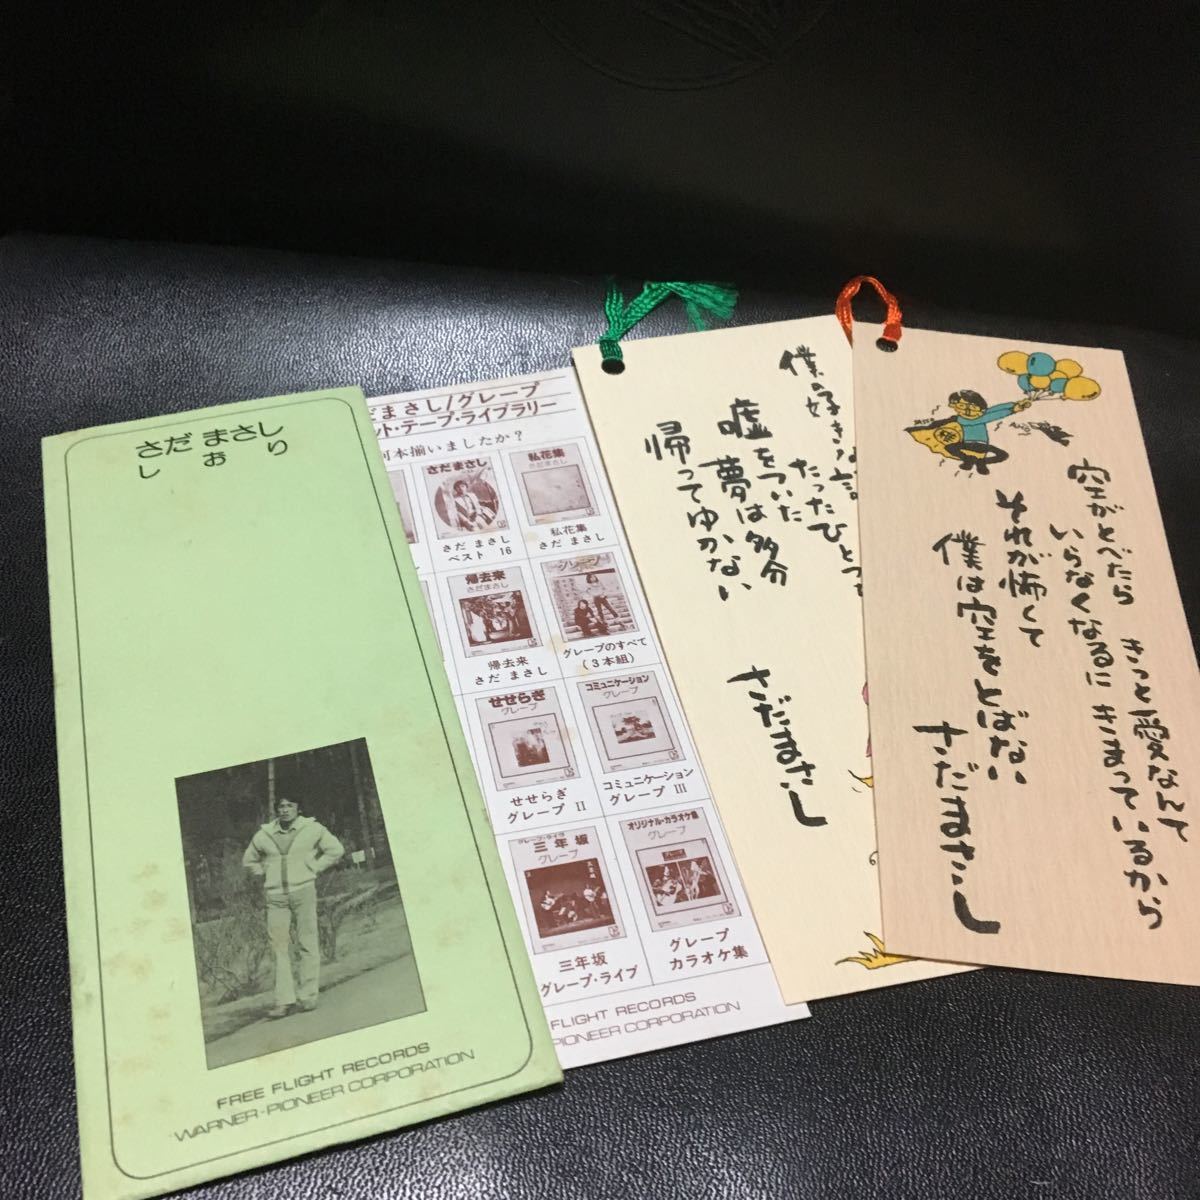 さだ まさし
し お り
FREE FLIGHT RECORDS
WARNER-PIONEER CORPORATION
だまさし/グレープ
ット・テープ・ライブラリー
何本揃いましたか？
さだ まさし
私花集
さだ まさし
さだ まさし
ベスト 16
私花集
さだ まさし
帰去来
さだ まさし
グレープ
帰去来
さだ まさし
グレープのすべて
(3本組)
せせらぎ
グレープ
コミュニケーション
グレープ
せせらぎ
グレープ II
コミュニケーション
グレープ III
グレープ・ライブ
三年坂
グレープ
オリジナル・カラオケ集
グレープ
三年坂
グレープ・ライブ
グレープ
カラオケ集
FLIGHT RECORDS
-PIONEER CORPORATION
僕の好きな言
たったひとつ
嘘をついた
夢は多分
帰ってゆかない
さだまさし
空がとべたら きっと愛なんて
いらなくなるに きまっているから
それが怖くて
僕は空をとばない
さだまさし